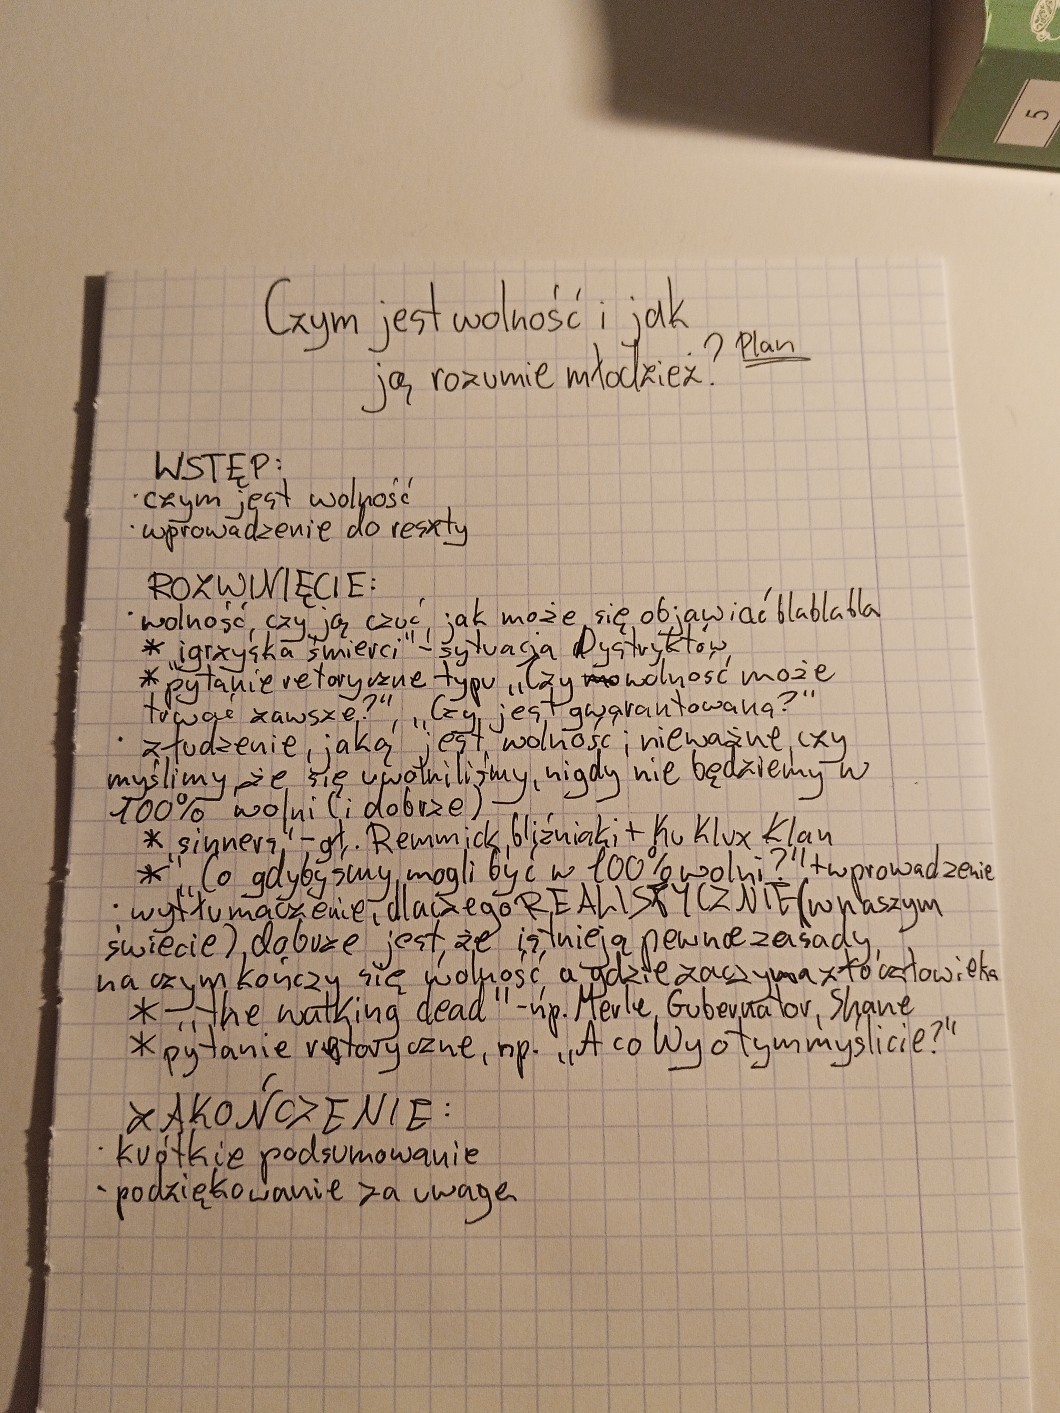 Czym jest wolność i jak
ją rozumie młodzież? Plan
WSTĘP:
· czym jest wolność
· wprowadzenie do reszty
ROZWINIĘCIE:
· wolność, czy ją czuć, jak może się objawiać blablabla
* "igrzyska śmierci" - sytuacja Dystryktów,
* pytanie retoryczne typu „Czy wolność może
trwać zawsze?", „Czy jest gwarantowana?"
· złudzenie, jaką jest wolność; nieważne, czy
myślimy, że się uwolniliśmy, nigdy nie będziemy w
100% wolni (i dobrze)
* „sinners" - gł. Remmick, bliźniaki + Ku Klux Klan
* „Co gdybyśmy mogli być w 100% wolni?" + wprowadzenie
· wytłumaczenie, dlaczego REALISTYCZNIE (w naszym
świecie) dobrze jest, że istnieją pewne zasady,
na czym kończy się wolność, a gdzie zaczyna zło człowieka
* - „the walking dead" - np. Merle, Gubernator, Shane
* pytanie retoryczne, np. „A co Wy o tym myślicie?"
ZAKOŃCZENIE:
· krótkie podsumowanie
· podziękowanie za uwagę
5